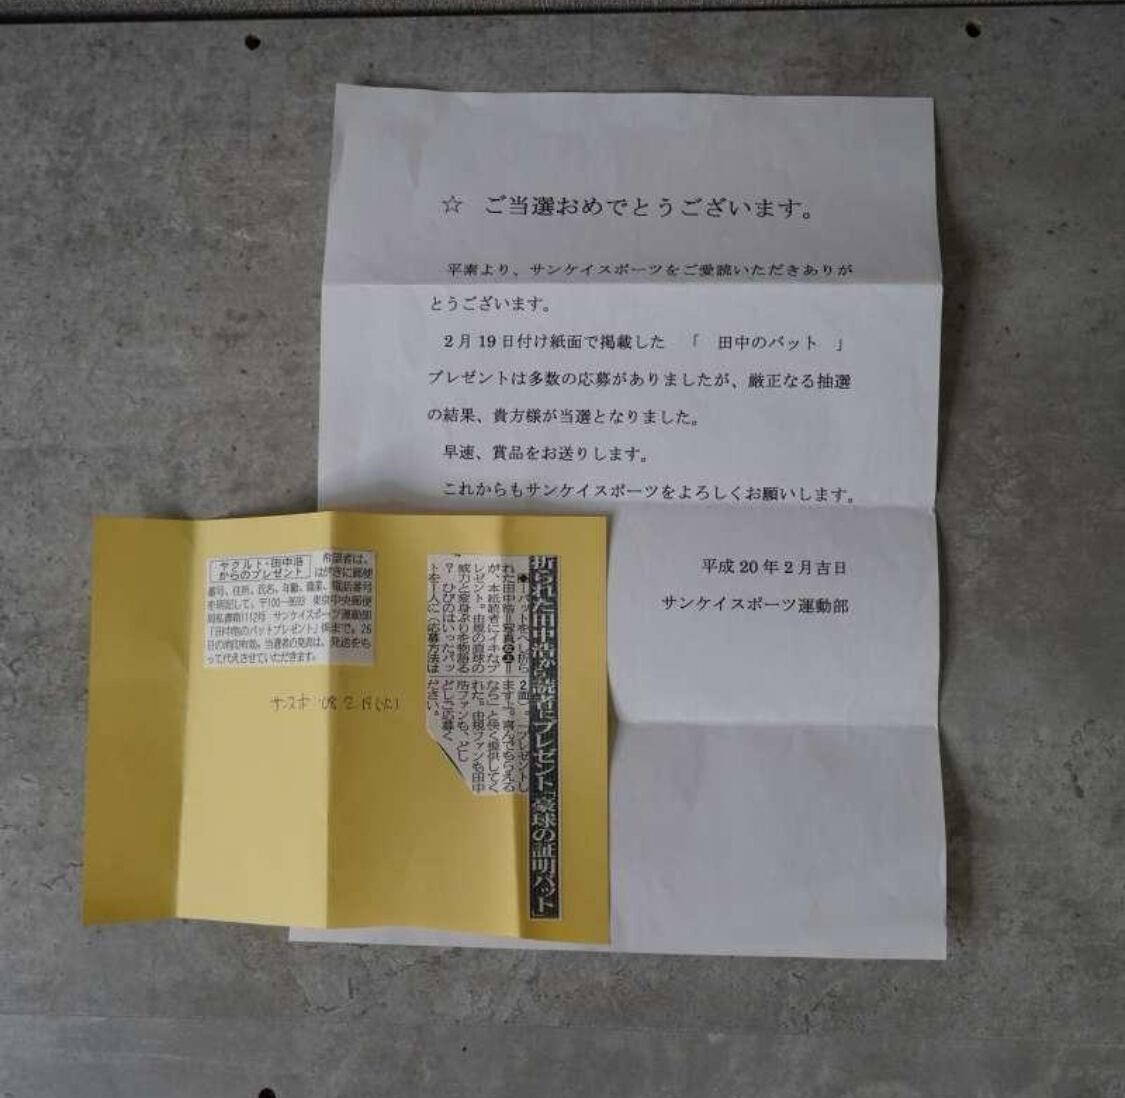 ☆ ご当選おめでとうございます。
平素より、サンケイスポーツをご愛読いただきありが
とうございます。
2月19日付け紙面で掲載した 「 田中のバット 」
プレゼントは多数の応募がありましたが、厳正なる抽選
の結果、貴方様が当選となりました。
早速、賞品をお送りします。
これからもサンケイスポーツをよろしくお願いします。
平成20年2月吉日
サンケイスポーツ運動部
ヤクルト・田中浩
からのプレゼント
希望者は、
はがきに郵便
番号、住所、氏名、年齢、職業、電話番号
を明記して、〒100-8693 東京中央郵便
局私書箱1112号 サンケイスポーツ運動部
「田中浩のバットプレゼント」係まで。26
日の消印有効。当選者の発表は、発送をも
って代えさせていただきます。
サンスポ '08.2.19(火)
折られた田中浩から読者にプレゼント「豪球の証明バット」
◆…バットをへし折ら
れた田中浩＝写真㊨上＝
が、本紙読者にイキなプ
レゼント。由規の直球の
威力と変身ぶりを物語る
？ ひびのはいったバッ
トを1人に（応募方法は
2面）。「プレゼントし
ますよ。喜んでもらえる
なら」と快く提供してく
れた。由規ファンも田中
浩ファンも、どし
どしご応募く
ださい。